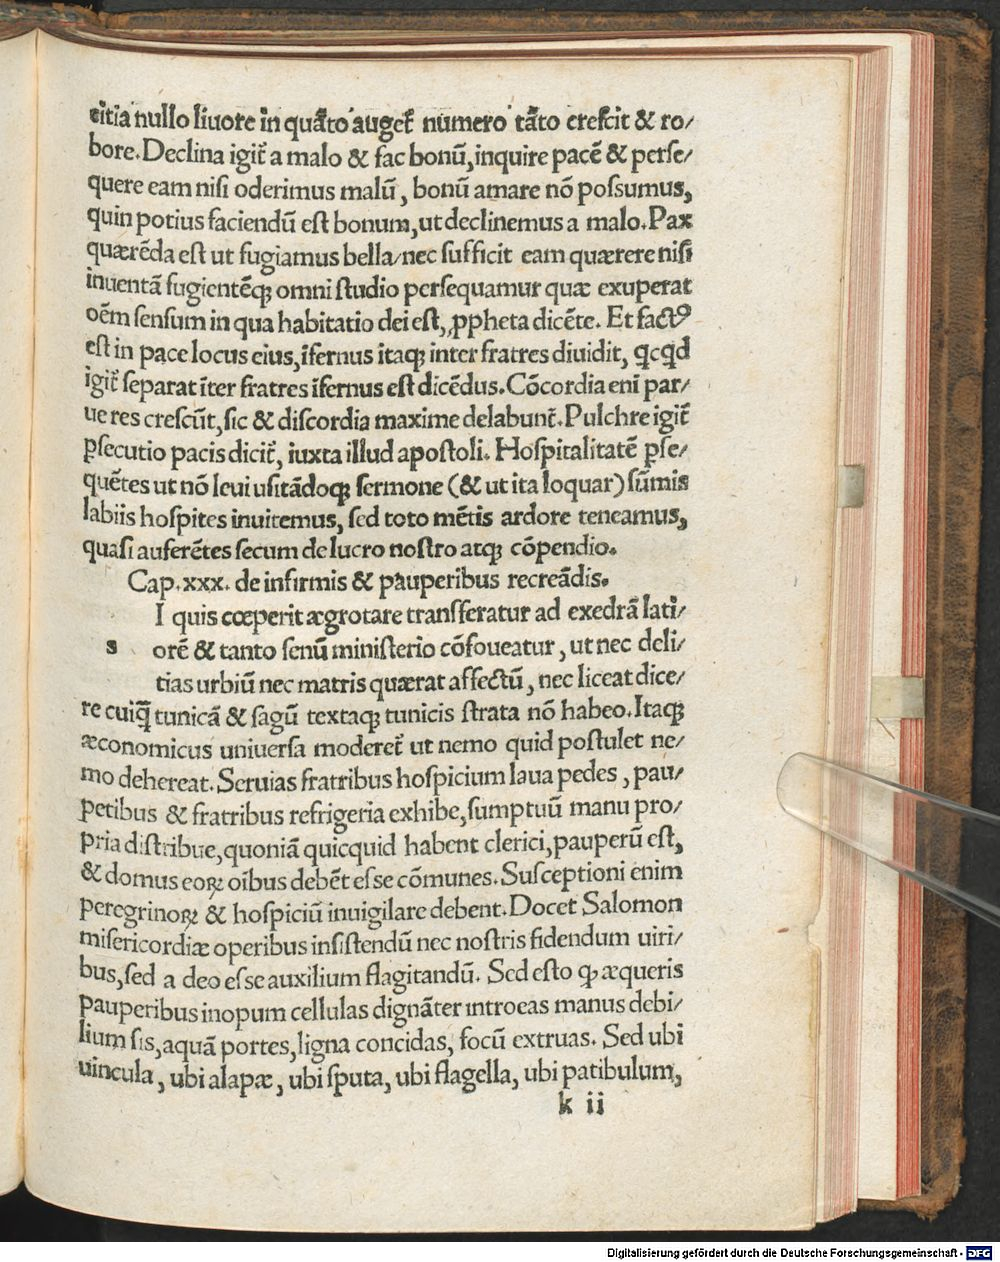 citia nullo liuore in quãto auget᷑ numero tãto creſcit & ro/
bore. Declina igit᷑ a malo & fac bonũ, inquire pacẽ & perſe/
quere eam niſi oderimus malũ, bonũ amare nõ poſſumus,
quin potius faciendũ eſt bonum, ut declinemus a malo. Pax
quærẽda eſt ut fugiamus bella/nec ſufficit eam quærere niſi
inuentã fugientẽqꝫ omni ſtudio perſequamur quæ exuperat
oẽm ſenſum in qua habitatio dei eſt, ꝓpheta dicẽte. Et factꝰ
eſt in pace locus eius, ĩfernus itaqꝫ inter fratres diuidit, qͥcqͥd
igit᷑ ſeparat ĩter fratres ĩfernus eſt dicẽdus. Cõcordia enĩ par/
ue res creſcũt, ſic & diſcordia maxime delabunt᷑. Pulchre igit᷑
ꝑſecutio pacis dicit᷑, iuxta illud apoſtoli. Hoſpitalitatẽ ꝑſe/
quẽtes ut nõ leui uſitãdoqꝫ ſermone (& ut ita loquar) ſũmis
labiis hoſpites inuitemus, ſed toto mẽtis ardore teneamus,
quaſi auferẽtes ſecum de lucro noſtro atqꝫ cõpendio.
Cap. xxx. de infirmis & pauperibus recreãdis.
I quis cœperit ægrotare tranſferatur ad exedrã lati/
s orẽ & tanto ſenũ miniſterio cõfoueatur, ut nec deli/
tias urbiũ nec matris quærat affectũ, nec liceat dice/
re cuiqͣ̃ tunicã & ſagũ textaqꝫ tunicis ſtrata nõ habeo. Itaqꝫ
æconomicus uniuerſa moderet᷑ ut nemo quid poſtulet ne/
mo dehereat. Seruias fratribus hoſpicium laua pedes, pau/
peribus & fratribus refrigeria exhibe, ſumptuũ manu pro/
pria diſtribue, quoniã quicquid habent clerici, pauperũ eſt,
& domus eoꝝ oĩbus debẽt eſſe cõmunes. Suſceptioni enim
peregrinoꝝ & hoſpiciũ inuigilare debent. Docet Salomon
miſericordiæ operibus inſiſtendũ nec noſtris fidendum uiri/
bus, ſed a deo eſſe auxilium flagitandũ. Sed eſto qꝫ æqueris
pauperibus inopum cellulas dignãter introeas manus debi/
lium ſis, aquã portes, ligna concidas, focũ extruas. Sed ubi
uincula, ubi alapæ, ubi ſputa, ubi flagella, ubi patibulum,
k ii
Digitalisierung gefördert durch die Deutsche Forschungsgemeinschaft - DFG